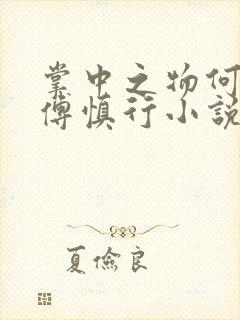 掌中之物何
傅慎行小說
夏儉良